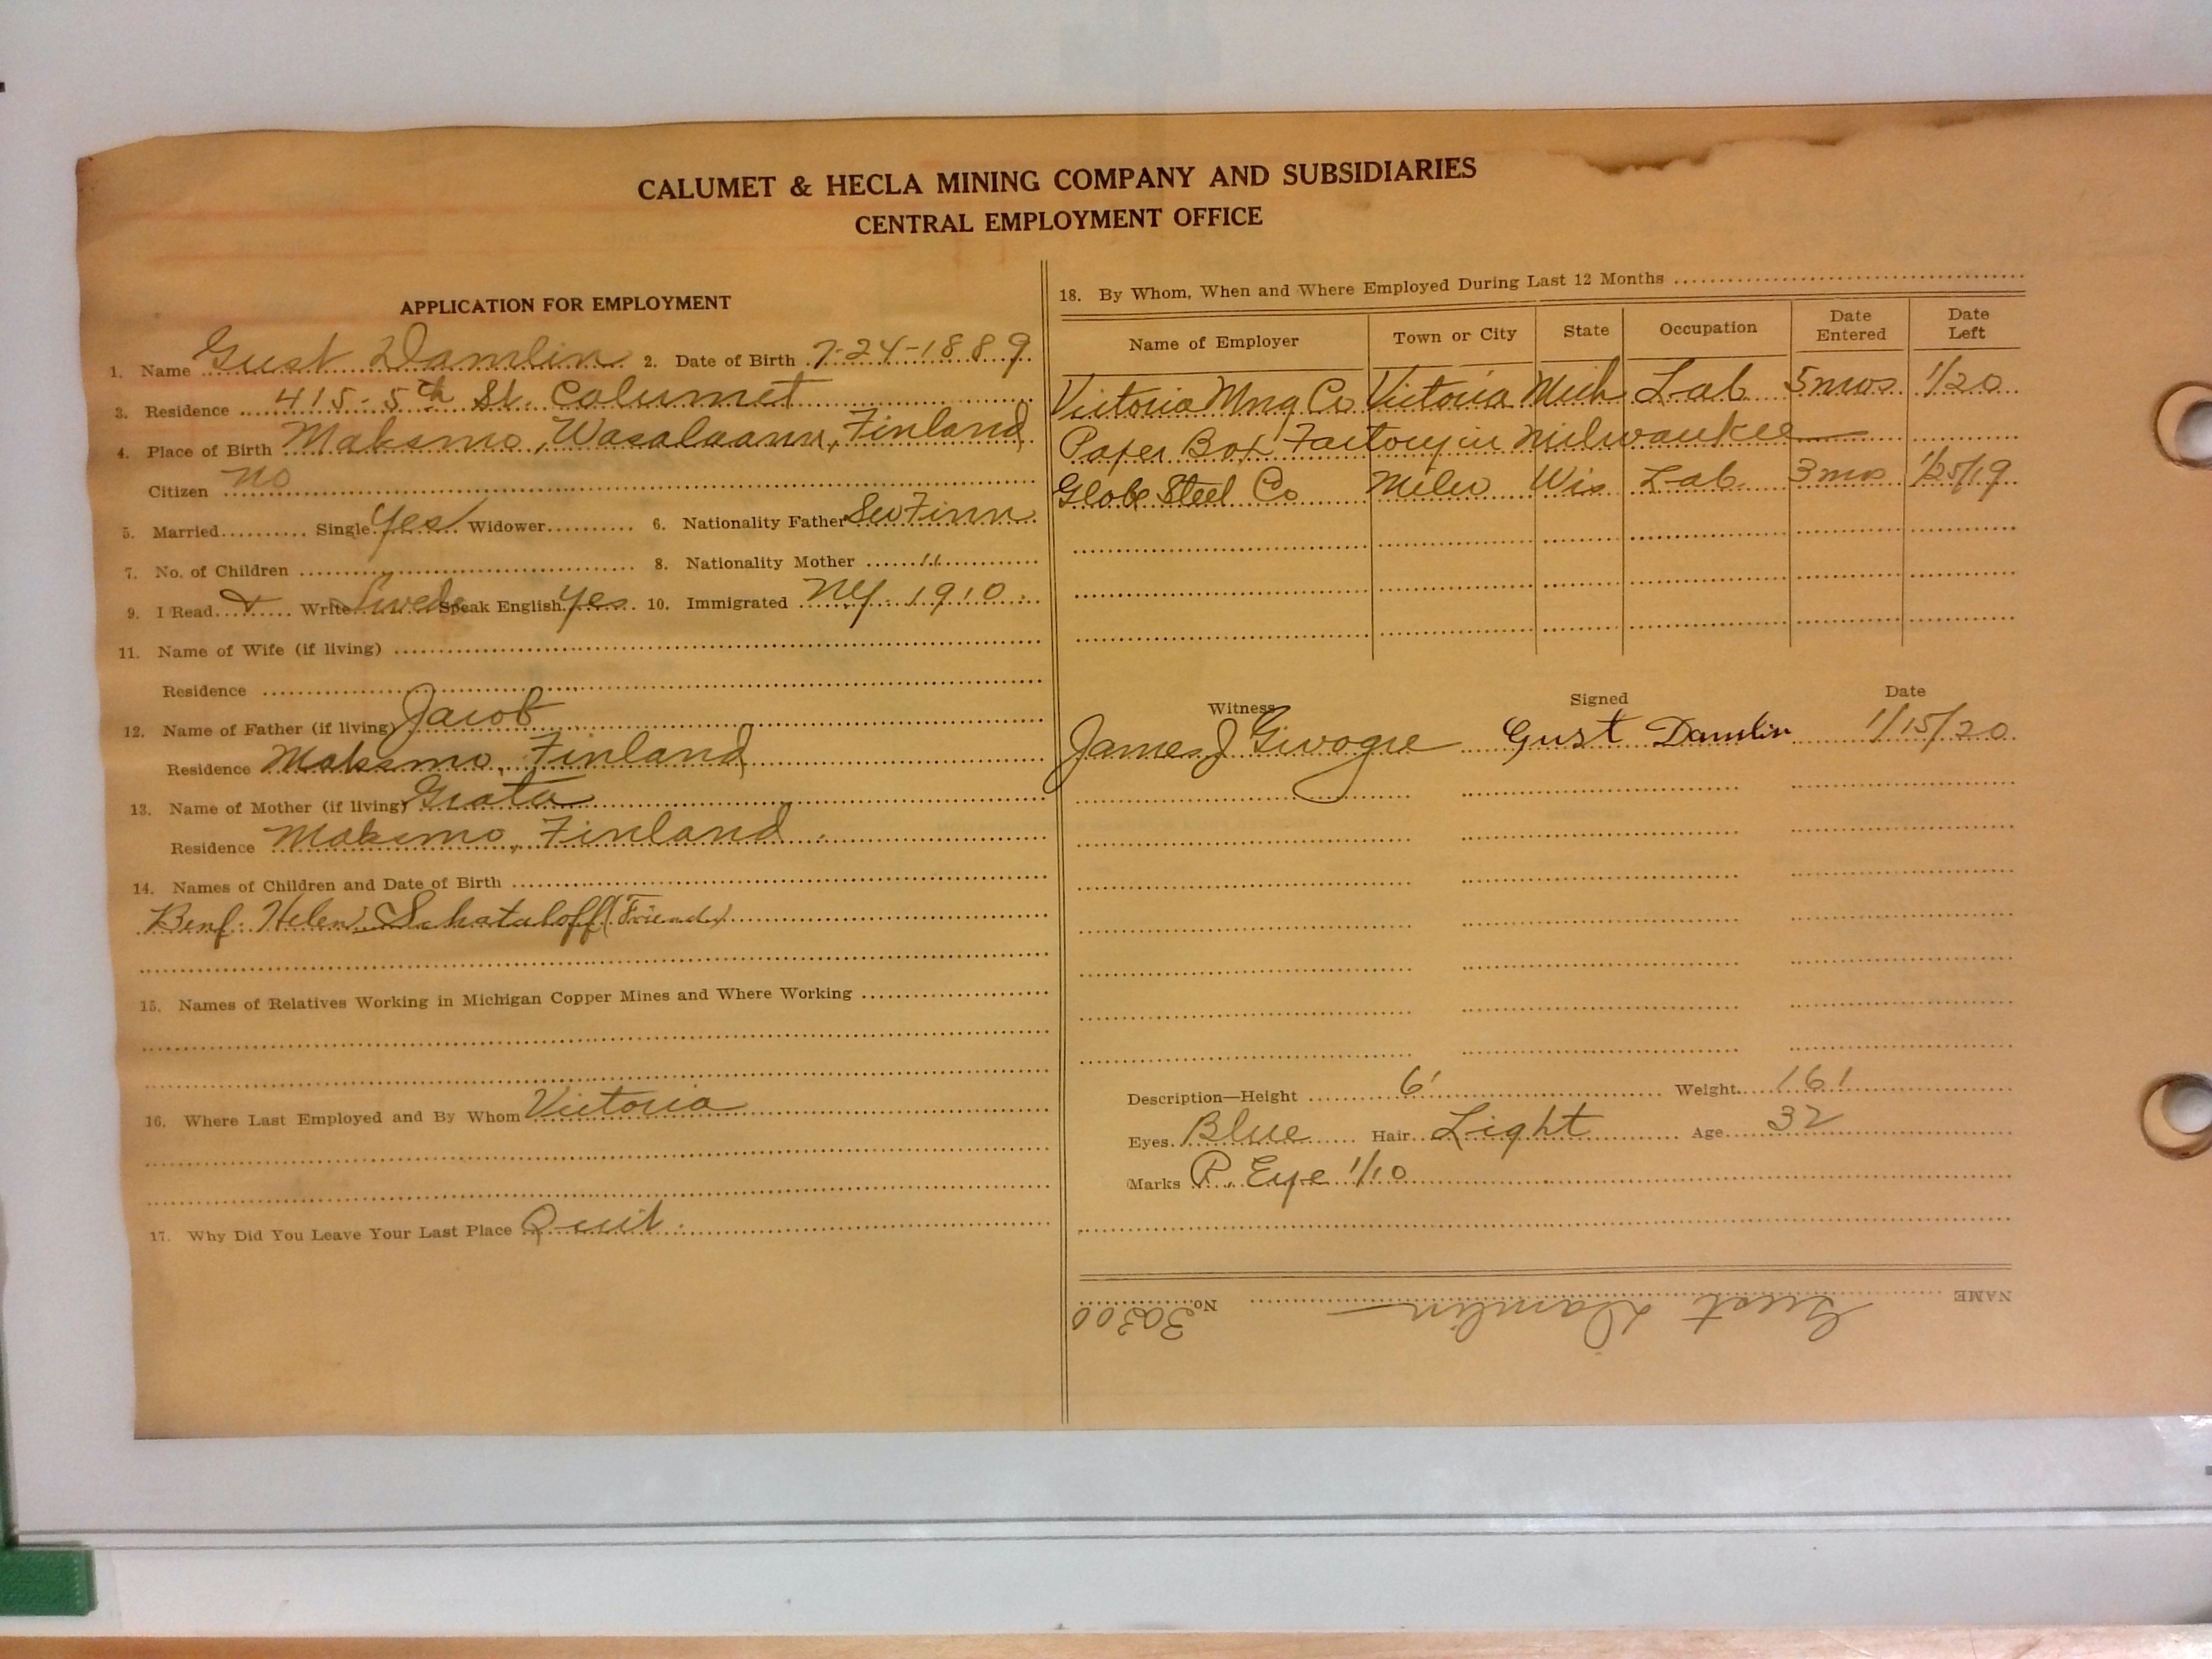 CALUMET & HECLA MINING COMPANY AND SUBSIDIARIES
CENTRAL EMPLOYMENT OFFICE
APPLICATION FOR EMPLOYMENT
1. Name Gust Damlin 2. Date of Birth 7-24-1889
3. Residence 415-5th St. Calumet
4. Place of Birth Maksmo, Wasalaann, Finland
Citizen no
5. Married Single Yes Widower 6. Nationality Father Sw Finn
7. No. of Children 8. Nationality Mother "
9. I Read & Write Swede Speak English yes 10. Immigrated NY 1910
11. Name of Wife (if living)
Residence
12. Name of Father (if living) Jacob
Residence Maksmo, Finland
13. Name of Mother (if living) Grata
Residence Maksmo, Finland
14. Names of Children and Date of Birth
Benf: Helen (Friend)
15. Names of Relatives Working in Michigan Copper Mines and Where Working
16. Where Last Employed and By Whom Victoria
17. Why Did You Leave Your Last Place Quit
18. By Whom, When and Where Employed During Last 12 Months
Name of Employer Town or City State Occupation Date Entered Date Left
Victoria Mng Co Victoria Mich Lab 5mos 1/20
Paper Box Factory in Milwaukee
Globe Steel Co Milw Wis Lab. 3mo 1/25/19
Witness Signed Date
James J Gust Damlin 1/15/20
Description—Height 6' Weight 161
Eyes Blue Hair Light Age 32
Marks R. Eye 1/10
NAME Gust Damlin No. 30300